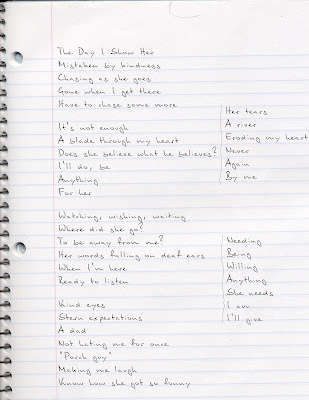 The Day I Show Her
Mistaken by kindness
Chasing as she goes
Gone when I get there
Have to chase some more
It's not enough
A blade through my heart
Does she believe what he believes?
I'll do, be
Anything
For her
Her tears
A river
Eroding my heart
Never
Again
By me
Watching, wishing, waiting
Where did she go?
To be away from me?
Her words falling on deaf ears
When I'm here
Ready to listen
Kind eyes
Stern expectations
A dad
Not hating me for once
"Porch guy"
Making me laugh
Know how she got so funny
Needing
Being
Willing
Anything
She needs
I am
I'll give